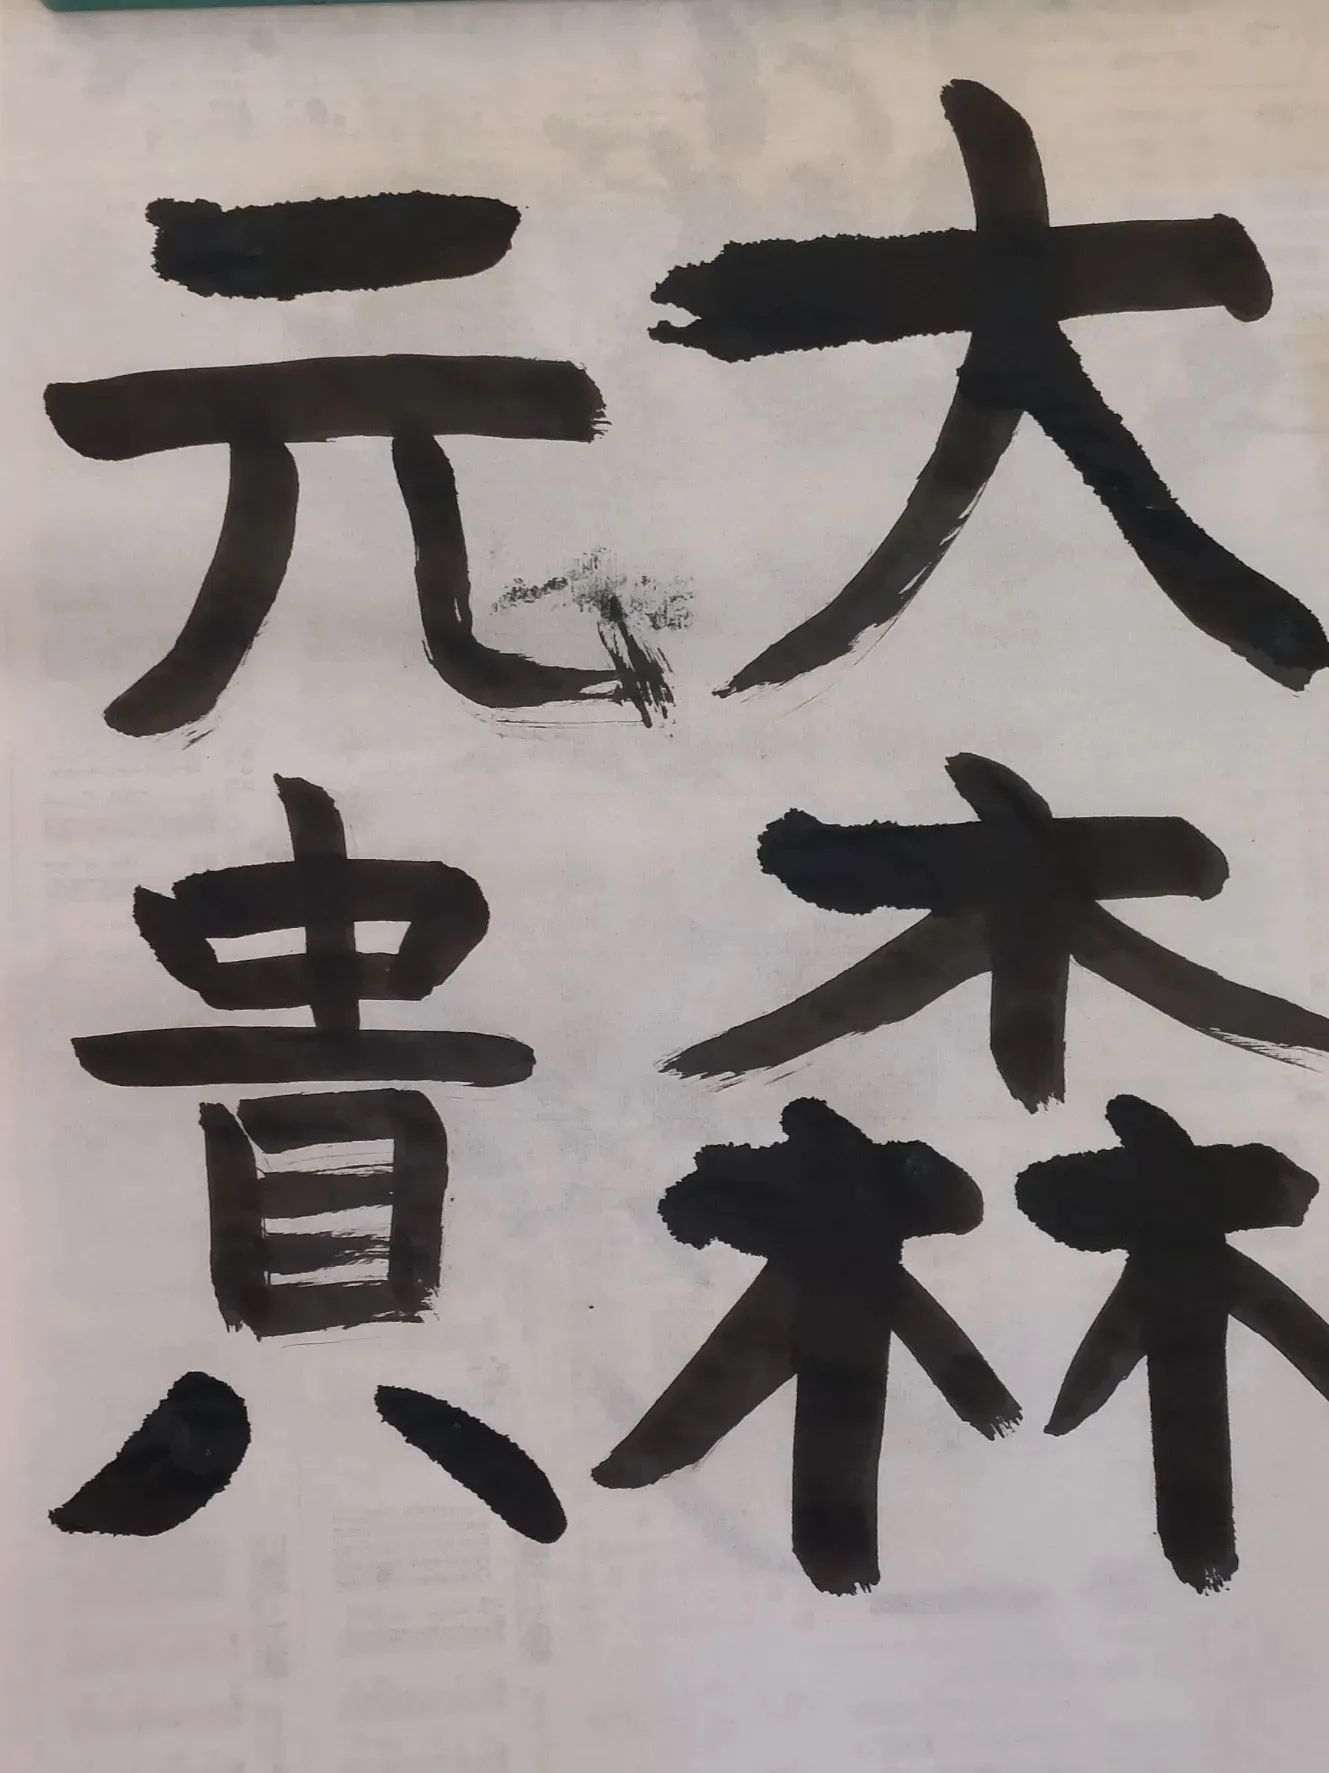 大森
元貴